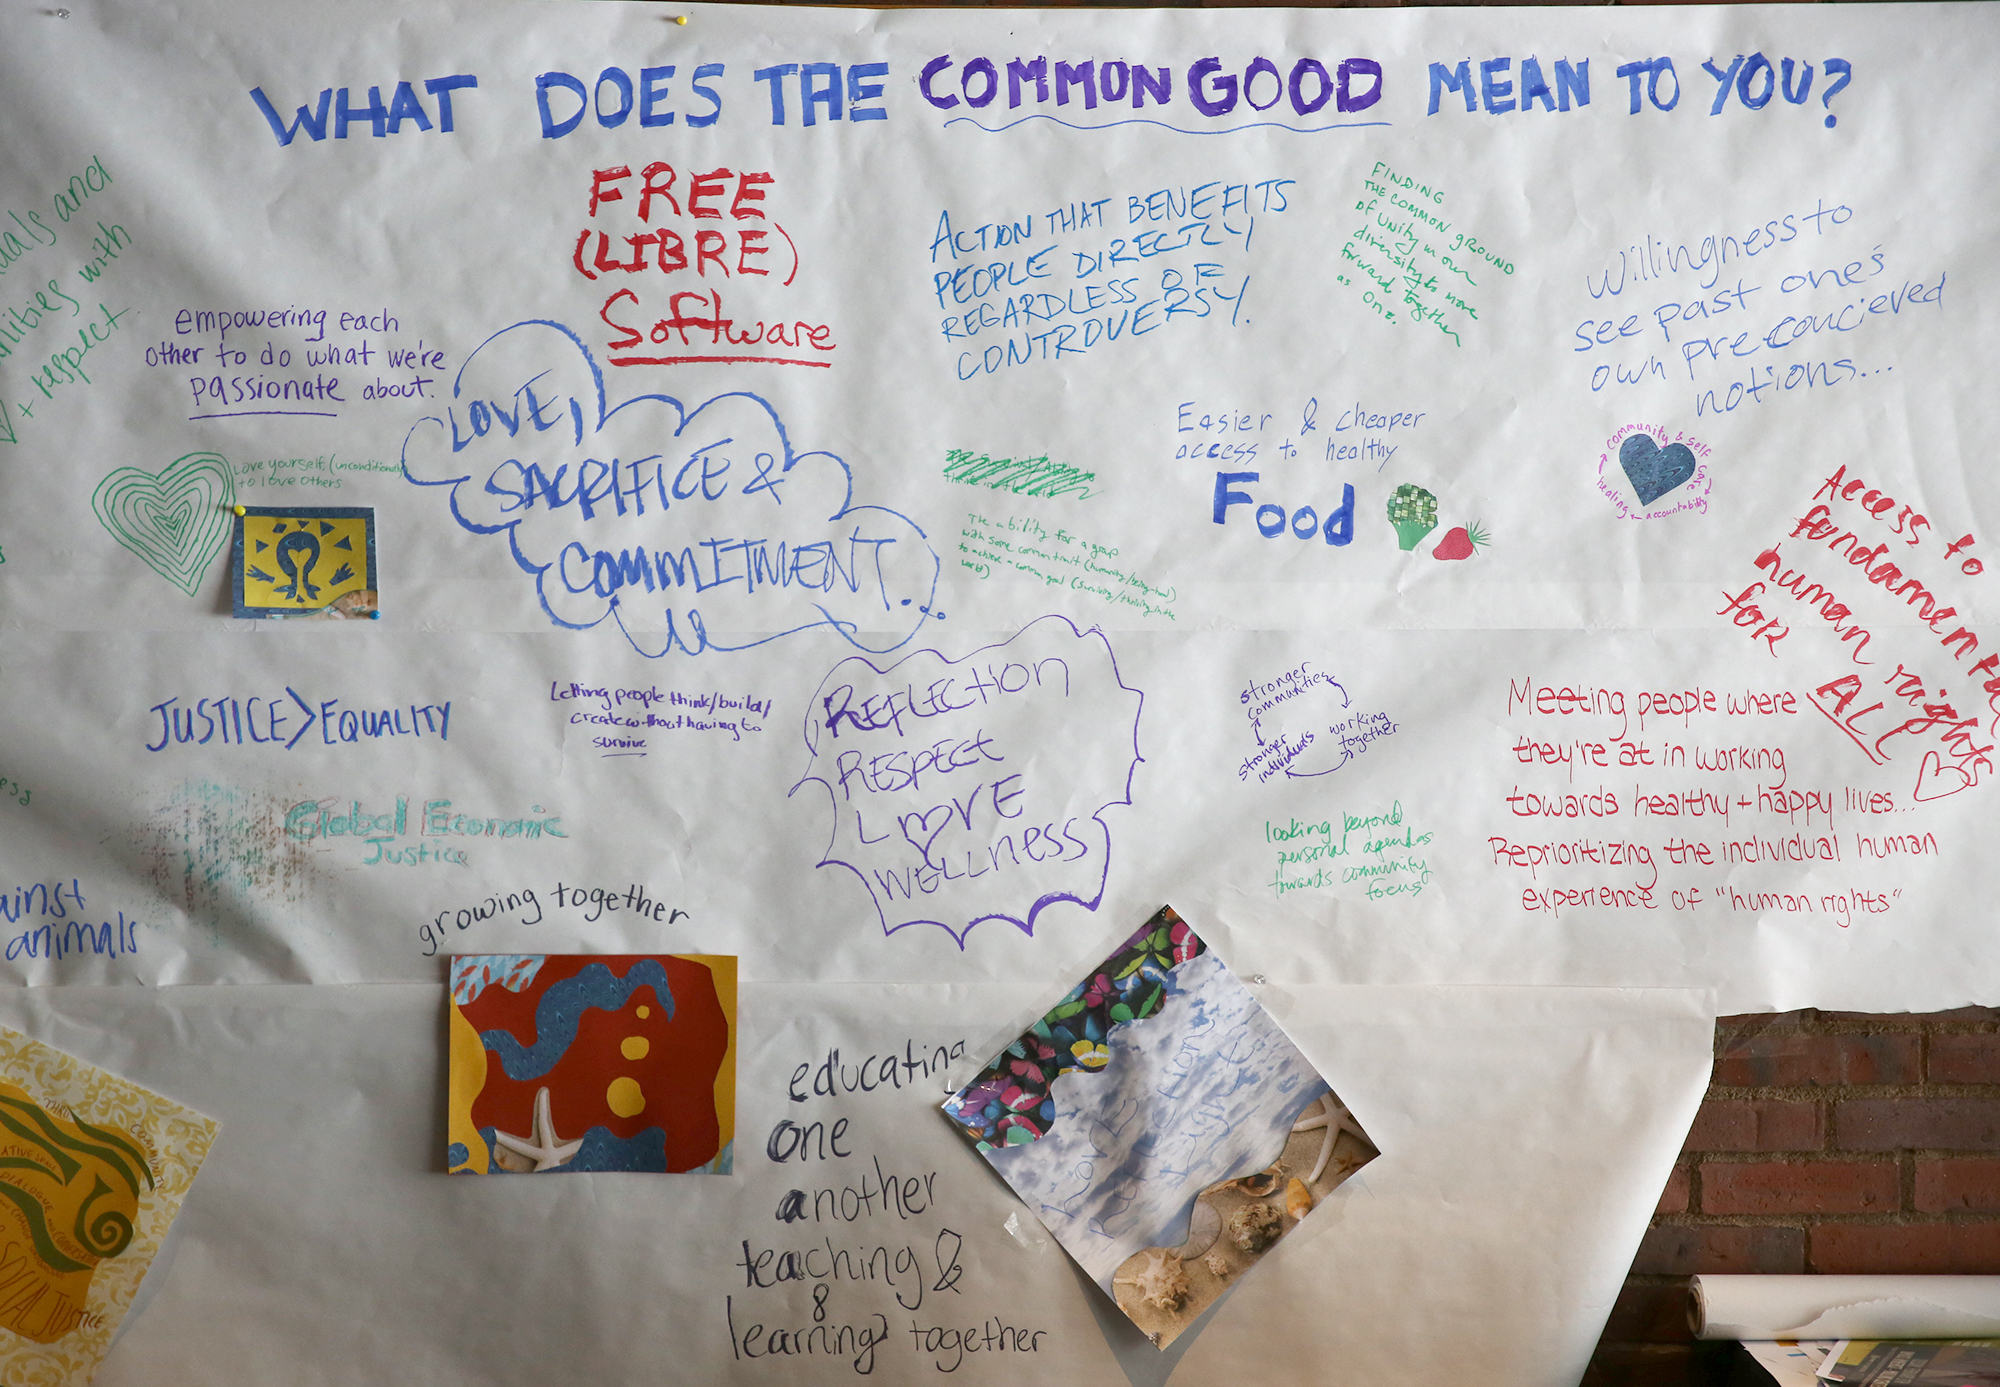 WHAT DOES THE COMMON GOOD MEAN TO YOU?
and
with
+ respect
empowering each
other to do what we're
passionate about.
FREE
(LIBRE)
Software
ACTION THAT BENEFITS
PEOPLE DIRECTLY
REGARDLESS OF
CONTROVERSY.
FINDING
THE COMMON GROUND
OF Unity in our
diversity to move
forward together
as One.
Willingness to
see past one's
own preconcieved
notions...
Love yourself (unconditionally)
to love others
LOVE,
SACRIFICE &
COMMITMENT...
The ability for a group
with some common trait (humanity/being-hood)
to achieve a common goal (surviving/thriving in the
world)
Easier & cheaper
access to healthy
Food
community & self care
accountability
healing
Access to
fundamental
human rights
for ALL
JUSTICE > EQUALITY
Letting people think/build/
create without having to
survive
REFLECTION
RESPECT
LOVE
WELLNESS
stronger
communities
working
together
stronger
individuals
Meeting people where
they're at in working
towards healthy + happy lives...
Reprioritizing the individual human
experience of "human rights"
Global Economic
Justice
looking beyond
personal agendas
towards community
focus
ainst
animals
growing together
educating
one
another
teaching &
8
learning together
Love
Reflection
Light
THRU
COMMUNITY
DIALOGUE
JUSTICE